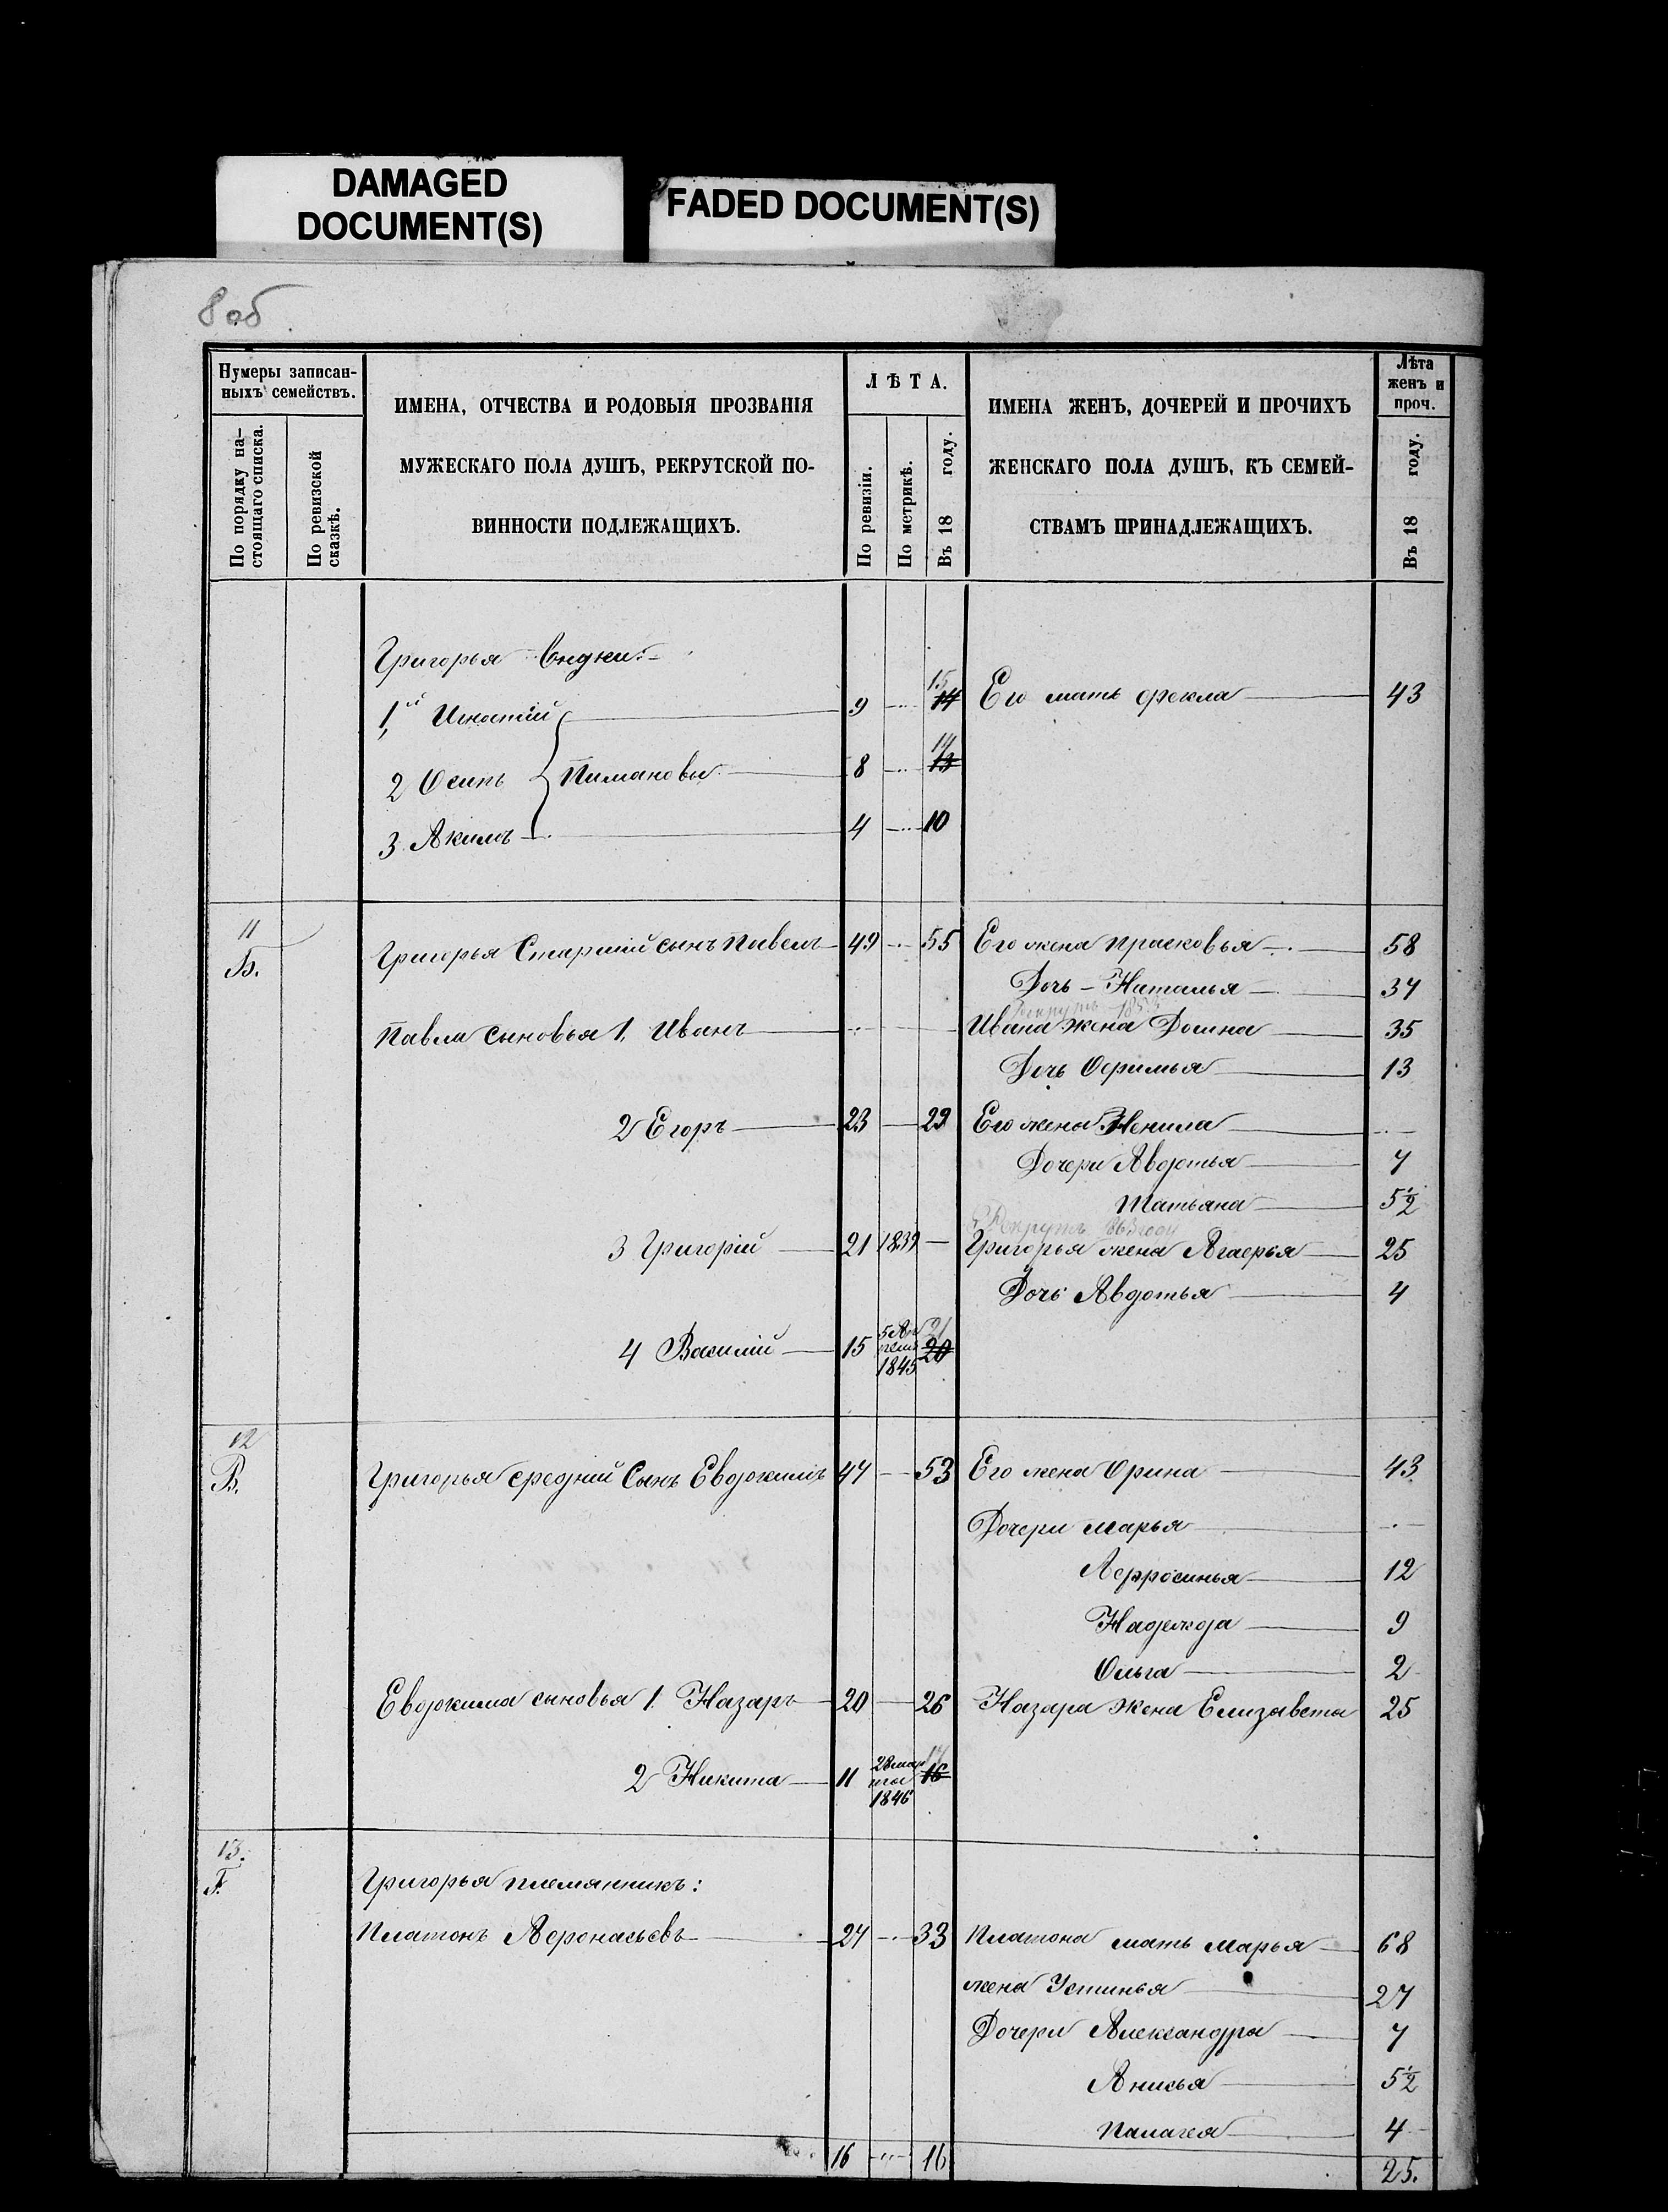 DAMAGED
DOCUMENT(S)
FADED DOCUMENT(S)
8 об
Нумеры записан-
ныхъ семействъ.
По порядку на-
стоящаго списка.
По ревизской
сказкѣ.
ИМЕНА, ОТЧЕСТВА И РОДОВЫЯ ПРОЗВАНІЯ
МУЖЕСКАГО ПОЛА ДУШЪ, РЕКРУТСКОЙ ПО-
ВИННОСТИ ПОДЛЕЖАЩИХЪ.
ЛѢТА.
По ревизіи.
По метрикѣ.
Въ 18 году.
ИМЕНА ЖЕНЪ, ДОЧЕРЕЙ И ПРОЧИХЪ
ЖЕНСКАГО ПОЛА ДУШЪ, КЪ СЕМЕЙ-
СТВАМЪ ПРИНАДЛЕЖАЩИХЪ.
Лѣта
женъ и
проч.
Въ 18 году.
Григорья внуки:
1й Игнатій 9 15 14 Его мать Фекла 43
2 Осипъ Пимановы 8 14 13
3 Акимъ 4 10
11
Б. Григорья Старшій сынъ Павелъ 49 55 Его жена Прасковья 58
Дочь Наталья 34
Рекрутъ
Павла сыновья 1. Иванъ Ивана жена Домна 35
Дочь Офимья 13
2 Егоръ 23 29 Его жена Ненила
Дочери Авдотья 7
Татьяна 5½
Рекрутъ 1863 года
3 Григорій 21 1839 Григорья жена Агафья 25
Дочь Авдотья 4
4 Василій 15 5 Апреля 1845 21 20
12
В. Григорья средній Сынъ Евдокимъ 47 53 Его жена Орина 43
Дочери Марья
Афросинья 12
Надежда 9
Ольга 2
Евдокима сыновья 1. Назаръ 20 26 Назара жена Елизавета 25
2 Никита 11 28 марта 1846 17 16
13.
Г. Григорья племянникъ:
Платонъ Афонасьевъ 27 33 Платона мать Марья 68
жена Устинья 27
Дочери Александра 7
Анисья 5½
Палагея 4
16 16 25.